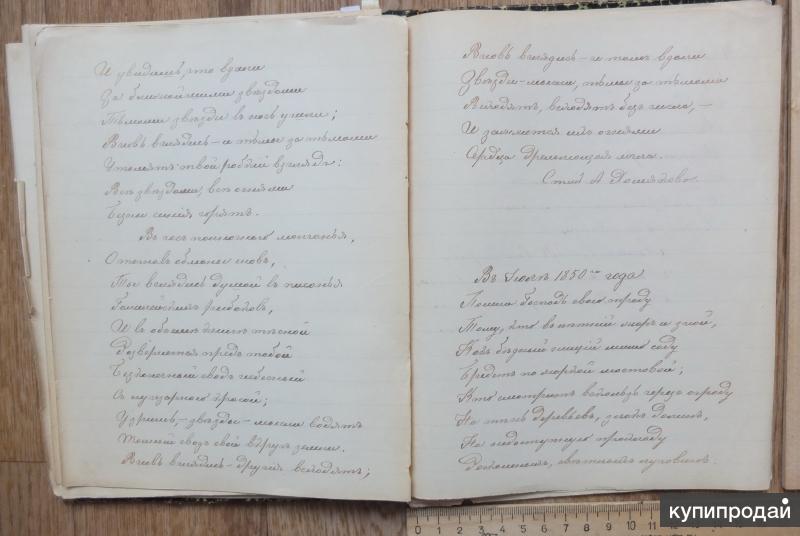 И увидишь, что вдали
За ближайшими звѣздами
Тьмами звѣзды въ ночь ушли;
Вновь вглядись – и тьмы за тьмами
Утомятъ твой робкій взглядъ:
Всѣ звѣздами, всѣ огнями
Бездны синія горятъ.
Въ часъ полночнаго молчанья,
Отогнавъ обманы сновъ,
Ты вглядись душой въ писанья
Галилейскихъ рыбаковъ,
И въ объемѣ книги тѣсной
Развернется предъ тобой
Безконечный сводъ небесный
Съ лучезарною красой;
Узришь, – звѣзды – мысли водятъ
Тайный сводъ свой вкругъ земли.
Вновь вглядись – другія всходятъ;
Вновь вглядись – и тамъ вдали
Звѣзды – мысли, тьмы за тьмами
Всходятъ, всходятъ безъ числа, –
И зажжется ихъ огнями
Сердца дремлющая мгла.
Стих. А Хомякова.
Въ Іюлѣ 1850го года
Пошли Господь свою отраду
Тому, кто въ лѣтній жаръ и зной,
Какъ бѣдный нищій мимо саду
Бредетъ по жаркой мостовой;
Кто смотритъ вскользь черезъ ограду
На тѣнь деревьевъ, злакъ долинъ,
На недоступную прохладу
Роскошныхъ, свѣтлыхъ луговинъ.
0 1 2 3 4 5 6 7 8 9 10 11 12
купипродай